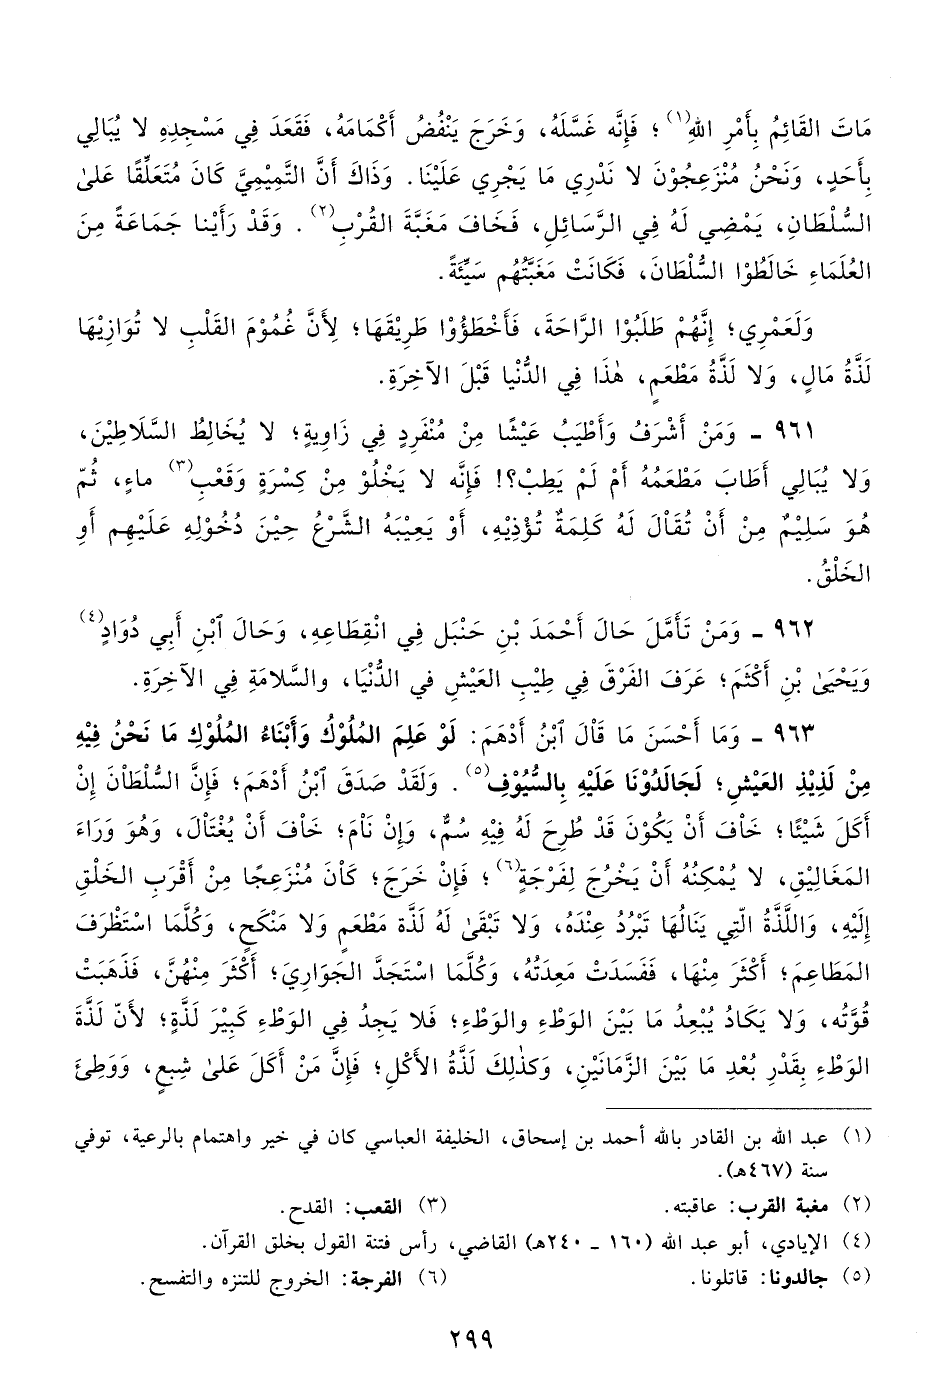 مَاتَ القَائِمُ بِأَمْرِ اللهِ(١)؛ فَإِنَّه غَسَّلَهُ، وَخَرَجَ يَنْفُضُ أَكْمَامَهُ، فَقَعَدَ فِي مَسْجِدِهِ لا يُبَالِي
بِأَحَدٍ، وَنَحْنُ مُنْزَعِجُوْنَ لا نَدْرِي مَا يَجْرِي عَلَيْنَا. وَذَاكَ أَنَّ التَّمِيْمِيَّ كَانَ مُتَعَلِّقًا عَلىٰ
السُّلْطَانِ، يَمْضِي لَهُ فِي الرَّسَائِلِ، فَخَافَ مَغَبَّةَ القُرْبِ(٢). وَقَدْ رَأَيْنا جَمَاعَةً مِنَ
العُلَمَاءِ خَالَطُوْا السُّلْطَانَ، فَكَانَتْ مَغَبَّتُهُم سَيِّئَةً.
وَلَعَمْرِي؛ إِنَّهُمْ طَلَبُوْا الرَّاحَةَ، فَأَخْطَؤُوْا طَرِيْقَهَا؛ لِأَنَّ غُمُوْمَ القَلْبِ لا تُوَازِيْهَا
لَذَّةُ مَالٍ، وَلا لَذَّةُ مَطْعَمٍ، هٰذَا فِي الدُّنْيا قَبْلَ الآخِرَةِ.
٩٦١ - وَمَنْ أَشْرَفُ وَأَطْيَبُ عَيْشًا مِنْ مُنْفَرِدٍ فِي زَاوِيةٍ؛ لا يُخَالِطُ السَّلَاطِيْنَ،
وَلا يُبَالِي أَطَابَ مَطْعَمُهُ أَمْ لَمْ يَطِبْ؟! فَإِنَّه لا يَخْلُوْ مِنْ كِسْرَةٍ وَقَعْبِ(٣) ماءٍ، ثُمّ
هُوَ سَلِيْمٌ مِنْ أَنْ تُقَاْلَ لَهُ كَلِمَةٌ تُؤْذِيْهِ، أَوْ يَعِيْبَهُ الشَّرْعُ حِيْنَ دُخُوْلِهِ عَلَيْهِم أَوِ
الخَلْقُ.
٩٦٢ - وَمَنْ تَأَمَّلَ حَالَ أَحْمَدَ بْنِ حَنْبَل فِي انْقِطَاعِهِ، وَحَالَ ٱبْنِ أَبِي دُوَادٍ(٤)
وَيَحْيَىٰ بْنِ أَكْثَمَ؛ عَرَفَ الفَرْقَ فِي طِيْبِ العَيْشِ في الدُّنْيَا، والسَّلامَةِ فِي الآخِرَةِ.
٩٦٣ - وَمَا أَحْسَنَ مَا قَالَ ٱبْنُ أَدْهَمَ: لَوْ عَلِمَ المُلُوْكُ وَأَبْنَاءُ المُلُوْكِ مَا نَحْنُ فِيْهِ
مِنْ لَذِيْذِ العَيْشِ؛ لَجَالَدُوْنَا عَلَيْهِ بِالسُّيُوْفِ(٥). وَلَقَدْ صَدَقَ ٱبْنُ أَدْهَمَ؛ فَإِنَّ السُّلْطَاْنَ إِنْ
أَكَلَ شَيْئًا؛ خَاْفَ أَنْ يَكُوْنَ قَدْ طُرِحَ لَهُ فِيْهِ سُمٌّ، وَإِنْ نَاْمَ؛ خَاْفَ أَنْ يُغْتَاْلَ، وَهُوَ وَرَاءَ
المَغَالِيْقِ، لا يُمْكِنُهُ أَنْ يَخْرُجَ لِفَرْجَةٍ(٦)؛ فَإِنْ خَرَجَ؛ كَاْنَ مُنْزَعِجًا مِنْ أَقْرَبِ الخَلْقِ
إِلَيْهِ، وَاللَّذَّةُ الّتِي يَنَالُهَا تَبْرُدُ عِنْدَهُ، وَلا تَبْقَىٰ لَهُ لَذّة مَطْعَمٍ وَلا مَنْكَحٍ، وَكُلَّمَا اسْتَظْرَفَ
المَطَاعِمَ؛ أَكْثَرَ مِنْهَا، فَفَسَدَتْ مَعِدَتُهُ، وَكُلَّمَا اسْتَجَدَّ الجَوَارِيَ؛ أَكْثَرَ مِنْهُنَّ، فَذَهَبَتْ
قُوَّتُه، وَلا يَكَادُ يُبْعِدُ مَا بَيْنَ الوَطْءِ والوَطْءِ؛ فَلا يَجِدُ فِي الوَطْءِ كَبِيْرَ لَذَّةٍ؛ لأَنّ لَذَّةَ
الوَطْءِ بِقَدْرِ بُعْدِ مَا بَيْنَ الزَّمَانَيْنِ، وَكَذٰلِكَ لَذَّةُ الأَكْلِ؛ فَإِنَّ مَنْ أَكَلَ عَلىٰ شِبعٍ، وَوَطِئَ
(١) عبد الله بن القادر بالله أحمد بن إسحاق، الخليفة العباسي كان في خير واهتمام بالرعية، توفي
سنة (٤٦٧هـ).
(٢) مغبة القرب: عاقبته. (٣) القعب: القدح.
(٤) الإيادي، أبو عبد الله (١٦٠ - ٢٤٠هـ) القاضي، رأس فتنة القول بخلق القرآن.
(٥) جالدونا: قاتلونا. (٦) الفرجة: الخروج للتنزه والتفسح.
٢٩٩